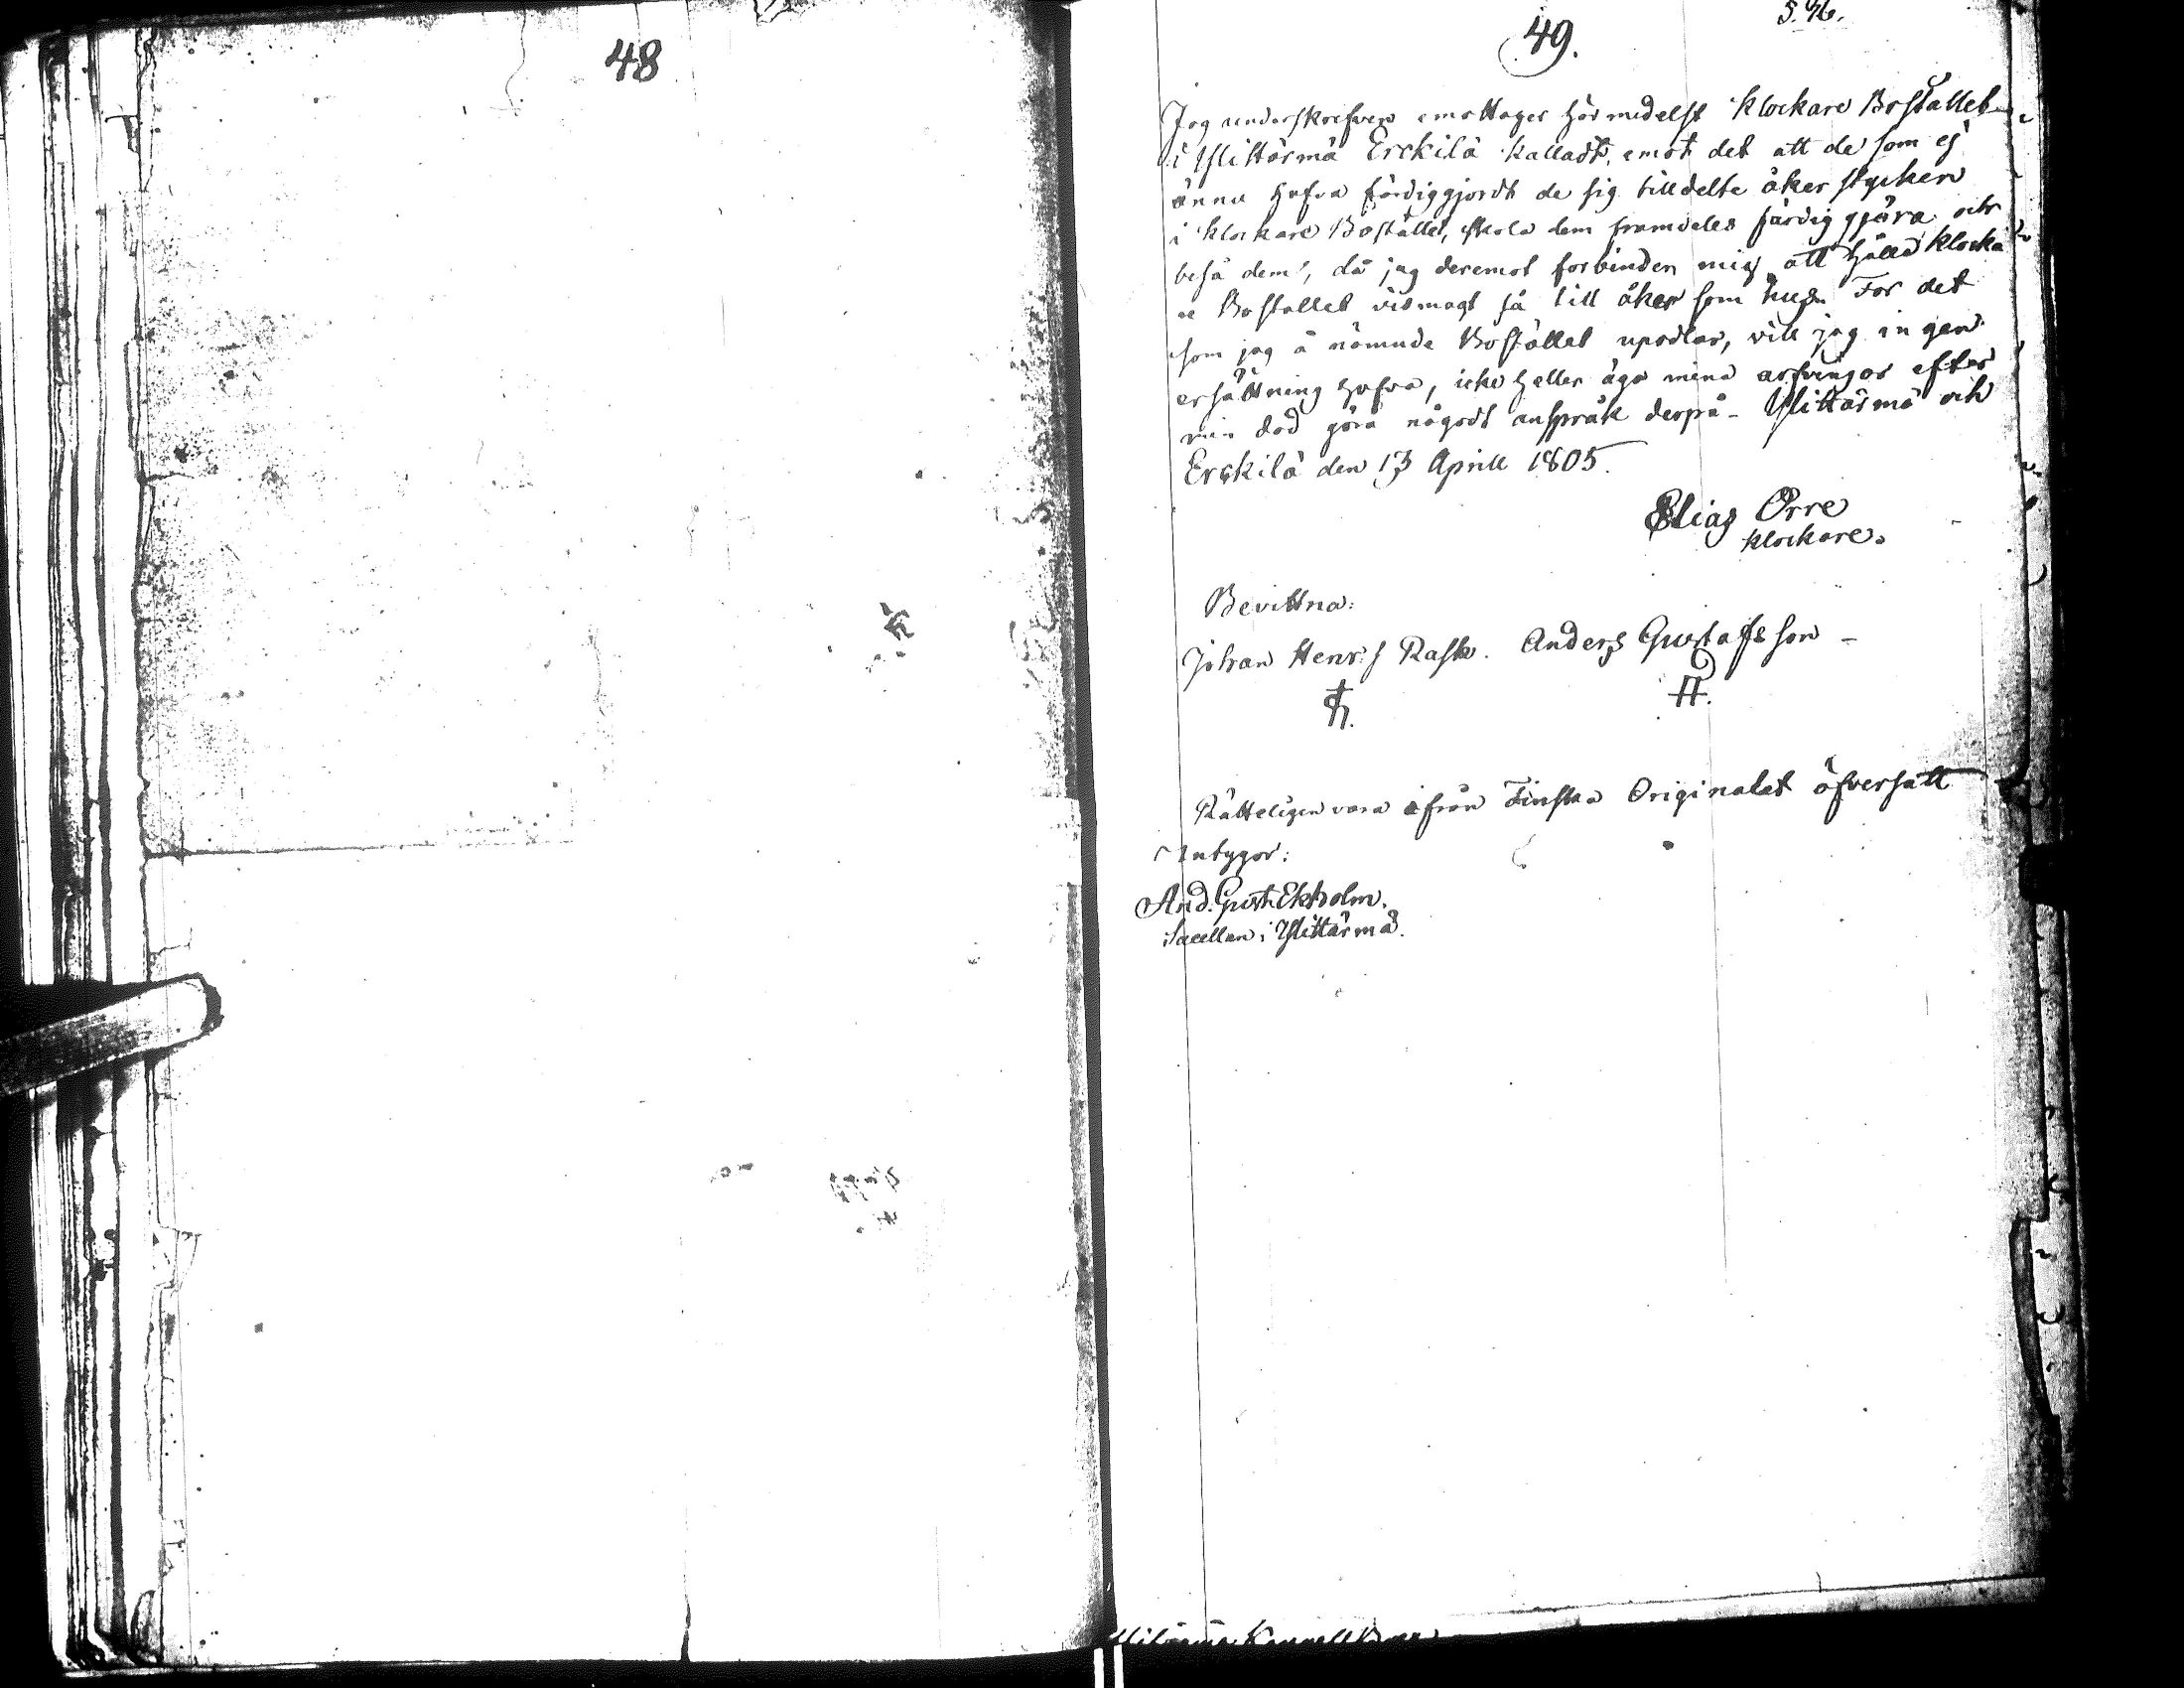 48
49.
Jag underskrefven emottager härmedelst Klockare Bostället
i Ylistärmä Erckilä kalladt, emot det att de som ej
ännu hafva färdiggjordt de sig tilldelte åker stycken
i Klockare Bostället, skola dem framdeles färdig gjöra och
beså dem, då jag deremot forbinder mig att hålla Klocka
re Bostället vid magt så till åker som hus. För det
som jag å nämnde Bostället upodlar, vill jag ingen
ersättning hafva, icke heller äga mina arfvingar efter
min död göra någodt anspråk derpå - Ylistärmä och
Erckilä den 13 Aprill 1805.
Elias Orre
klockare.
Bevittna:
Johan Henr: s Rask. Anders Gustafsson -
Rätteligen vara ifrån Finska Originalet öfversatt
intygar:
And. Gust. Ekholm.
Sacellan i Ylistärmä.